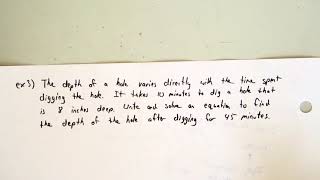 ex3) The depth of a hole varies directly with the time spent
digging the hole. It takes 10 minutes to dig a hole that
is 8 inches deep. Write and solve an equation to find
the depth of the hole after digging for 45 minutes.